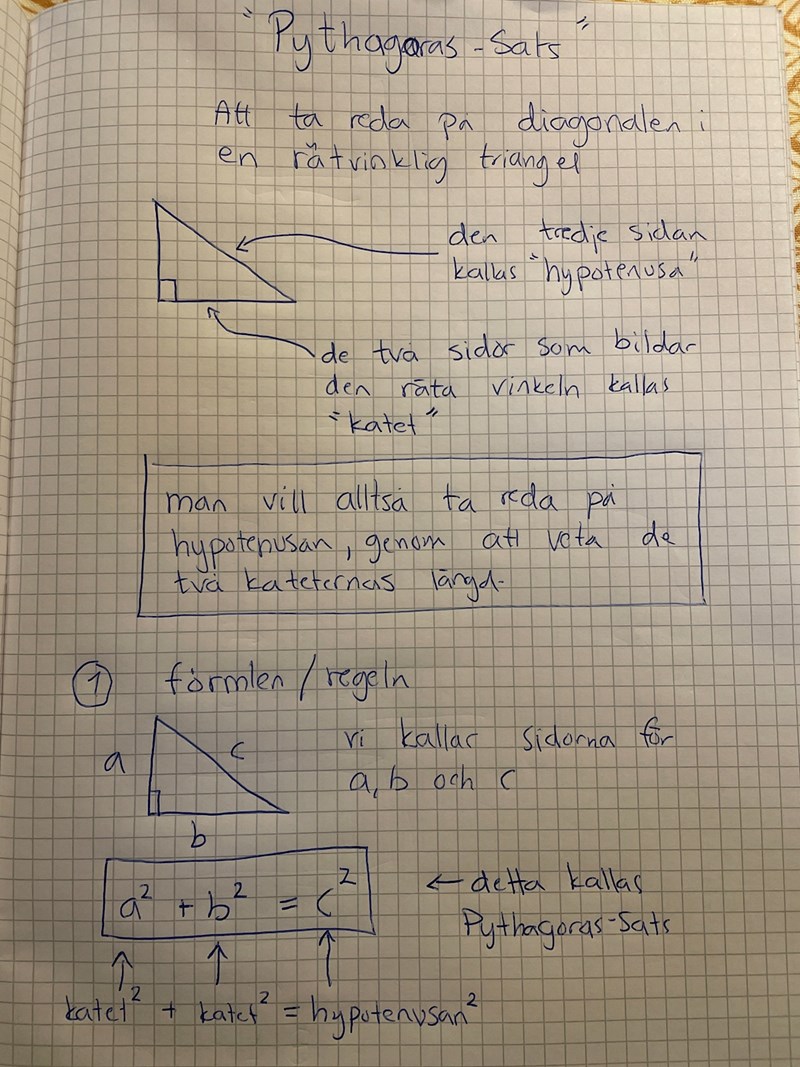 "Pythagoras-Sats"
Att ta reda på diagonalen i
en rätvinklig triangel
den tredje sidan
kallas "hypotenusa"
de två sidor som bildar
den räta vinkeln kallas
"katet"
man vill alltså ta reda på
hypotenusan, genom att veta de
två kateternas längd.
① formlen / regeln
a
c
b
vi kallar sidorna för
a, b och c
a² + b² = c²
← detta kallas
Pythagoras-Sats
katet² + katet² = hypotenusan²